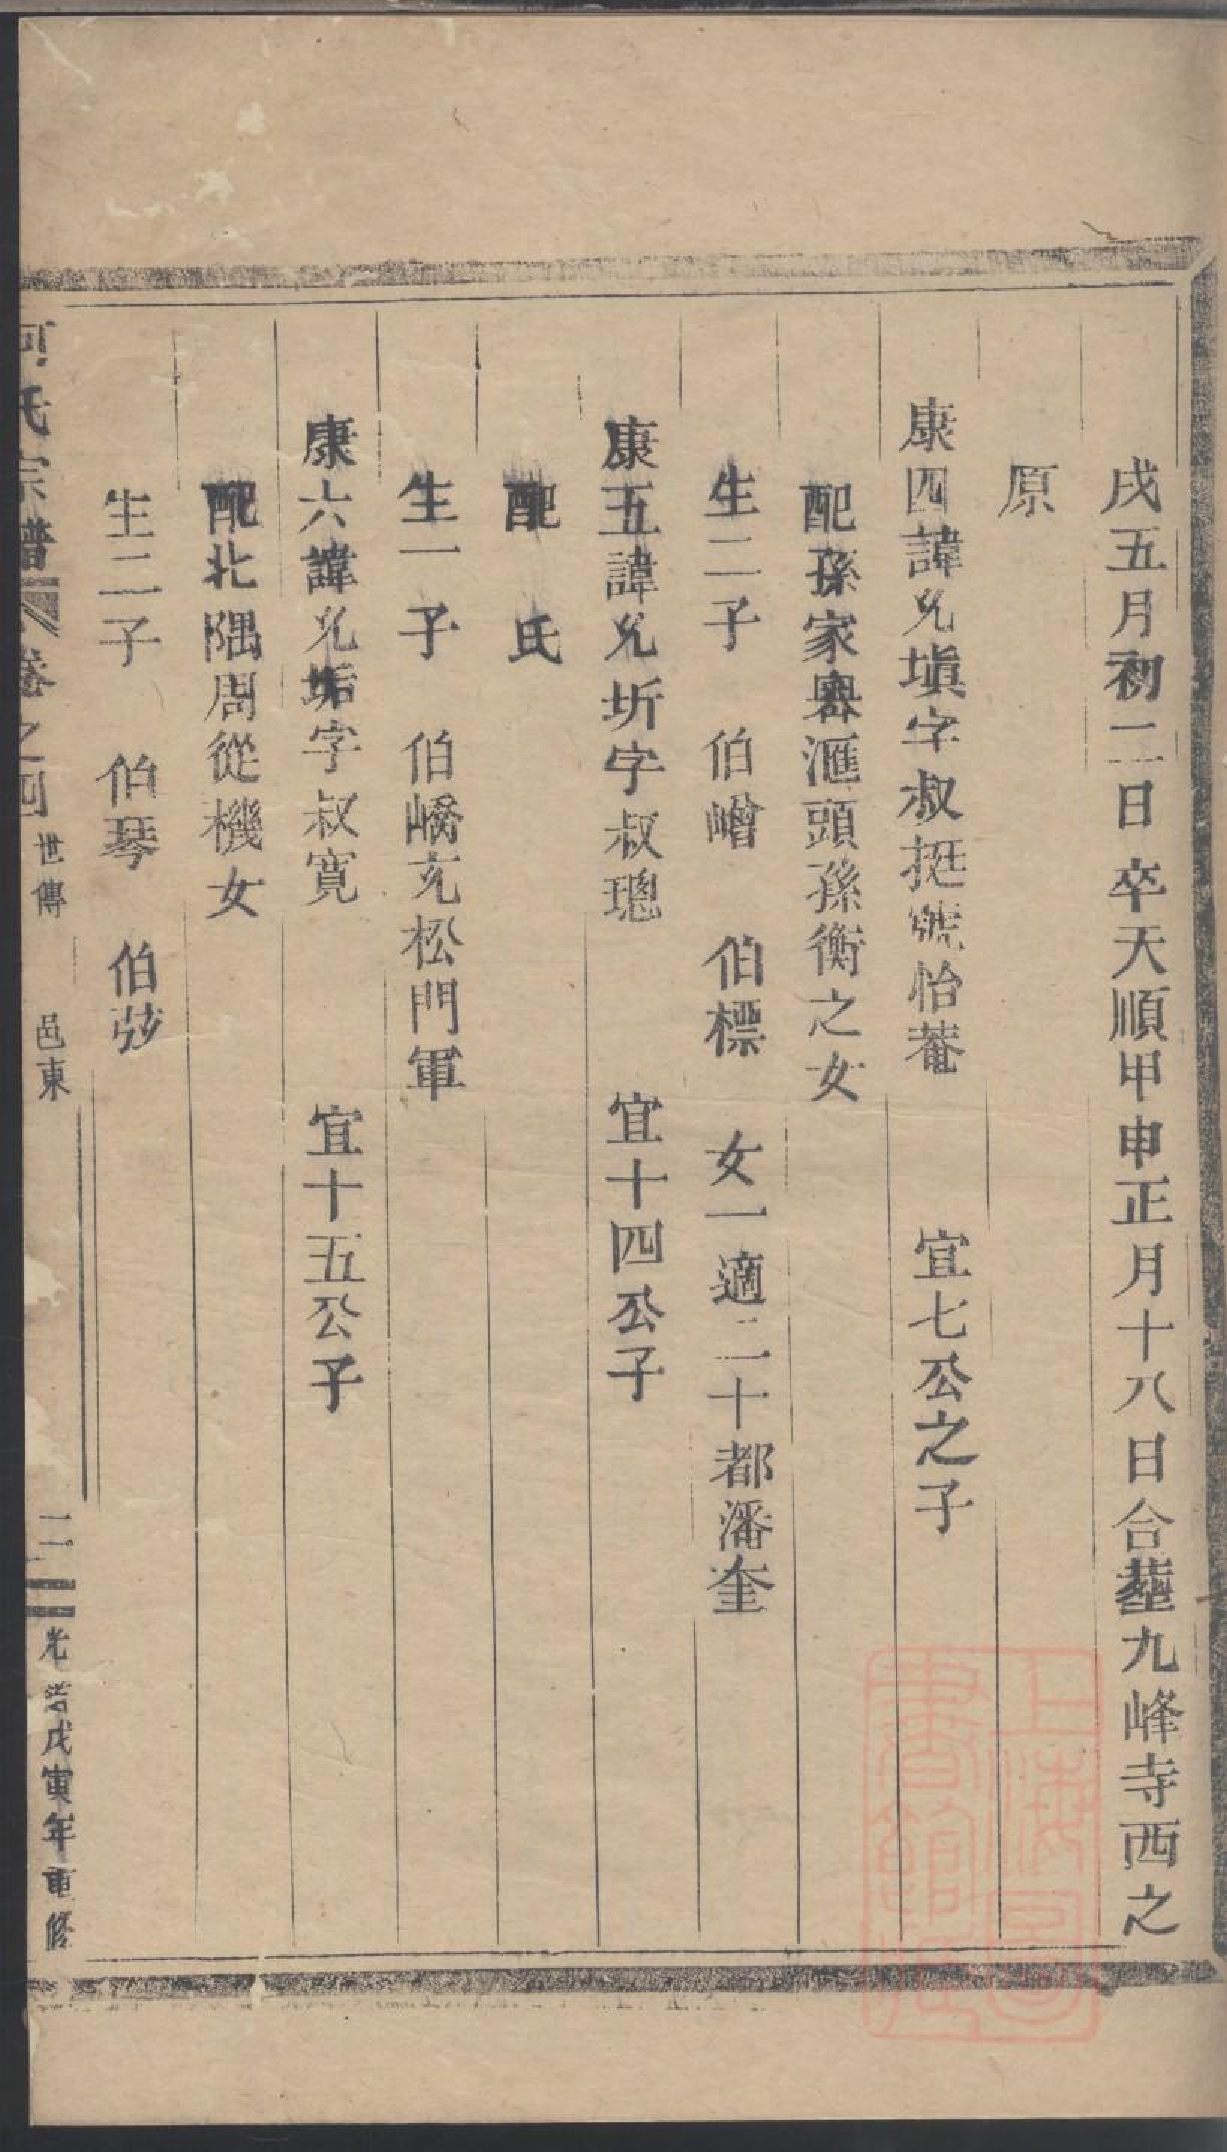 戌五月初二日卒天順甲申正月十八日合塟九峰寺西之
原
康四諱允塡字叔挺號怡菴 宜七公之子
配孫家嶴滙頭孫衡之女
生二子 伯嶒 伯標 女一適二十都潘奎
康五諱允圻字叔璁 宜十四公子
配 氏
生一子 伯嶠充松門軍
康六諱允垢字叔寬 宜十五公子
配北隅周從機女
生二子 伯琴 伯弦
氏宗譜 卷之四 世傳 邑東 二 光緒戊寅年重修
上海圖書館藏